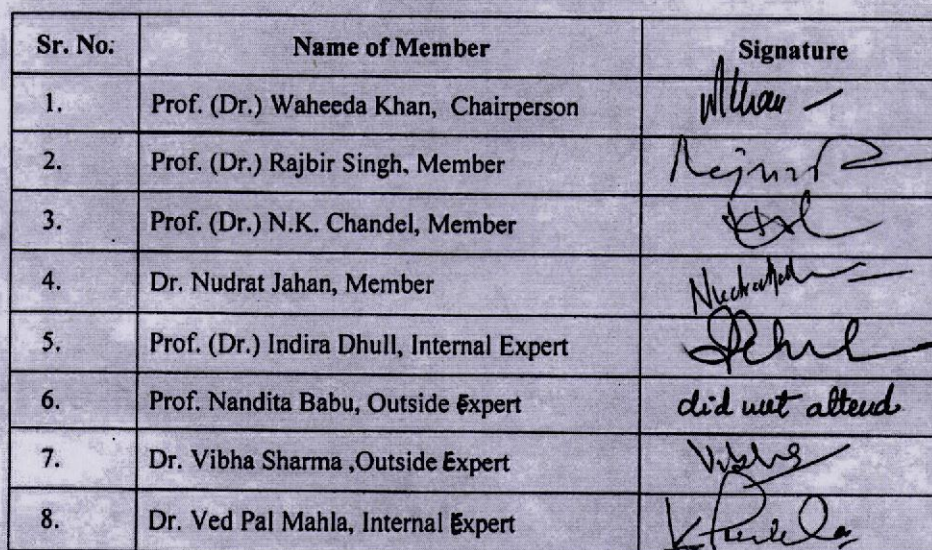 Sr. No. Name of Member Signature
1. Prof. (Dr.) Waheeda Khan, Chairperson
2. Prof. (Dr.) Rajbir Singh, Member
3. Prof. (Dr.) N.K. Chandel, Member
4. Dr. Nudrat Jahan, Member
5. Prof. (Dr.) Indira Dhull, Internal Expert
6. Prof. Nandita Babu, Outside Expert did not attend
7. Dr. Vibha Sharma ,Outside Expert
8. Dr. Ved Pal Mahla, Internal Expert